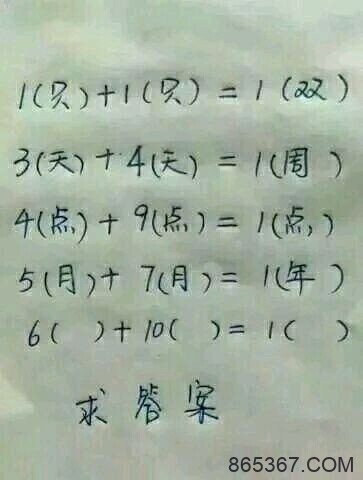 1(只)+1(只)=1(双)
3(天)+4(天)=1(周)
4(点)+9(点)=1(点)
5(月)+7(月)=1(年)
6( )+10( )=1( )
求答案
865367.COM